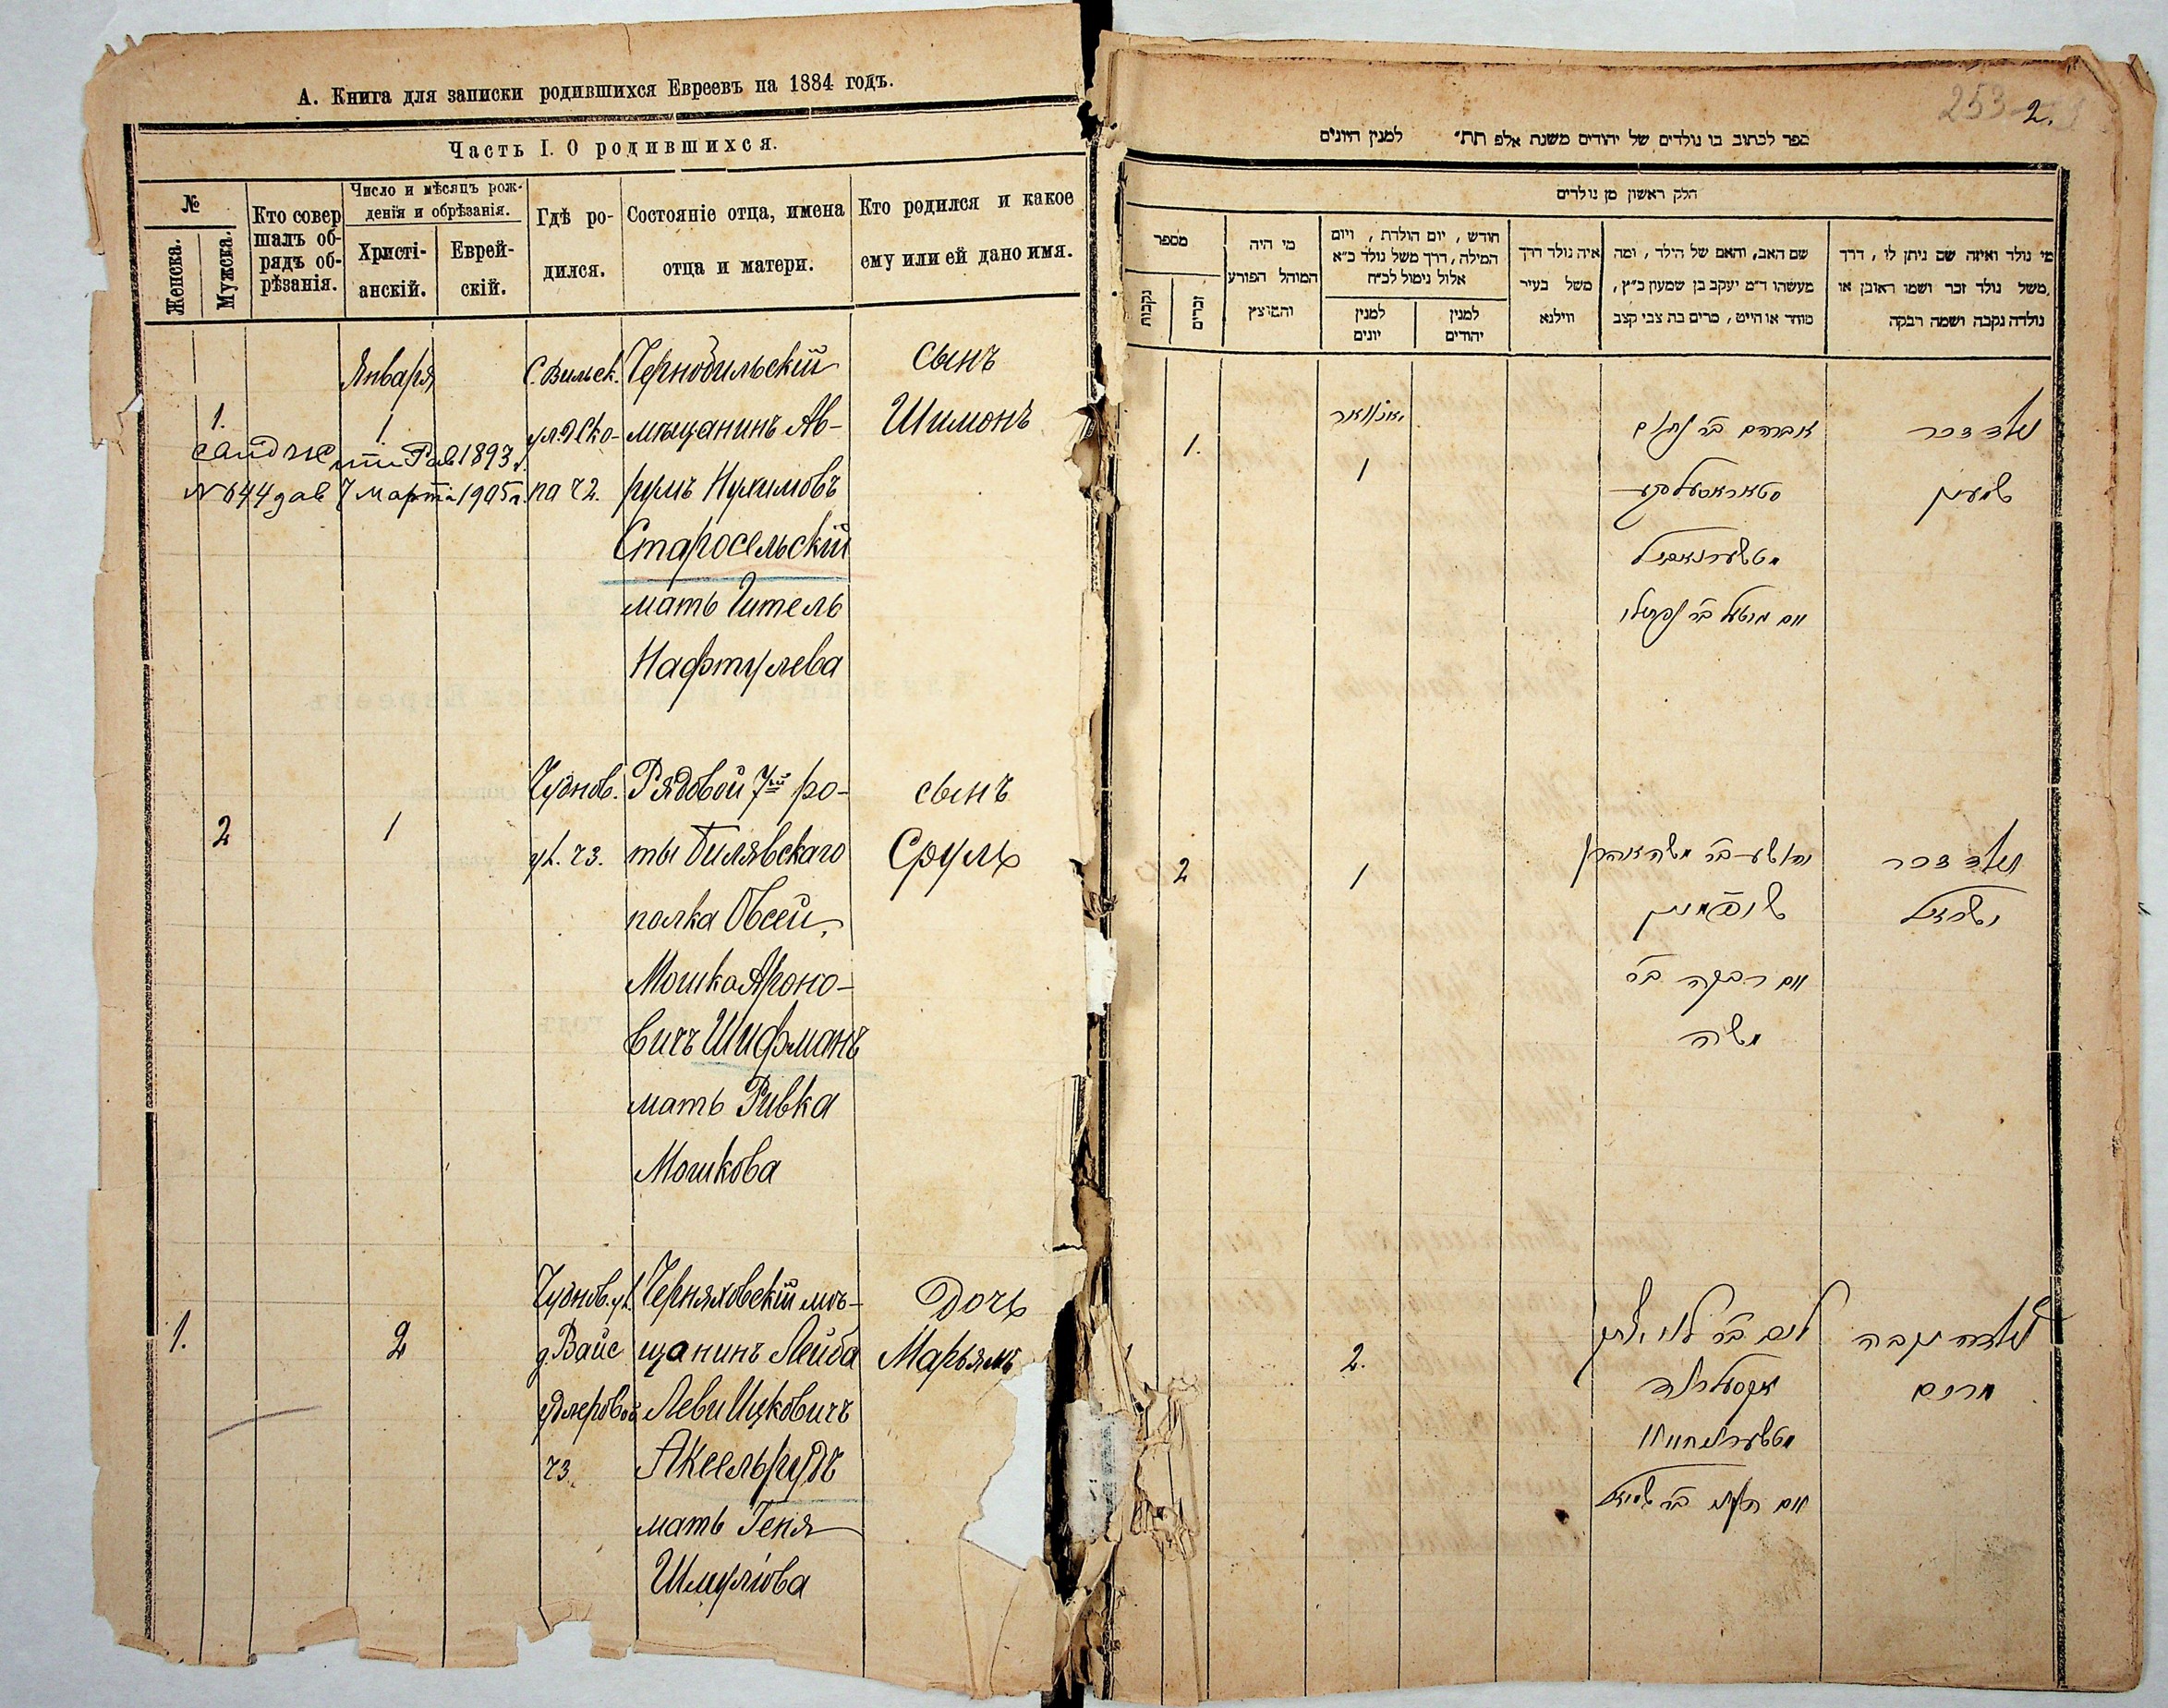 А. Книга для записки родившихся Евреевъ на 1884 годъ.
Часть I. О родившихся.
№
Женска.
Мужска.
Кто совер
шалъ об-
рядъ об-
рѣзанія.
Число и мѣсяцъ рож-
денія и обрѣзанія.
Христі-
анскій.
Еврей-
скій.
Гдѣ ро-
дился.
Состояніе отца, имена
отца и матери.
Кто родился и какое
ему или ей дано имя.
Января
1.
1
№ 644 7 марта 1905 г.
С. Вильск.
на ч2.
Чернобильскій
мѣщанинъ Ав-
румъ Нухимовъ
Старосельскій
мать Гитель
Нафтулева
сынъ
Шимонъ
2
1
Чуднов.
ул. ч3.
Рядовой 7й ро-
ты Билявскаго
полка Овсей,
Мошка Ароно-
вичъ Шифманъ
мать Ривка
Мошкова
сынъ
Сруль
1.
2
Чуднов. ул.
д Вайс
ч3.
Черняховскій мѣ-
щанинъ Лейба
Леви Ицковичъ
Аксельрудъ
мать Геня
Шмулiова
Дочь
Марьямъ
253
2.
ספר לכתוב בו נולדים של יהודים משנת אלפ תת״ למנין היונים
חלק ראשון מן נולדים
מספר
נקבות
זכרים
מי היה
המוהל הפורע
והמוצץ
חודש , יום הולדת , ויום
המילה, דרך משל נולד כ״א
אלול נימול לכ״ח
למנין
יונים
למנין
יהודים
איה נולד דרך
משל בעיר
ווילנא
שם האב, והאם של הילד , ומה
מעשהו ד״מ יעקב בן שמעון כ״ץ,
סוחר או חייט, מרים בת צבי קצב
מי נולד ואיזה שם ניתן לו , דרך
משל נולד זכר ושמו ראובן או
נולדה נקבה ושמה רבקה
1.
יאנואר
1
אברהם בר נחום
סטאראסעלסקי
נולד זכר
שמעון
2
1
שיפמאן
ואם רבקה בר
משה
נולד זכר
ישראל
2.
אקסעלרוד
נולדה נקבה
מרים